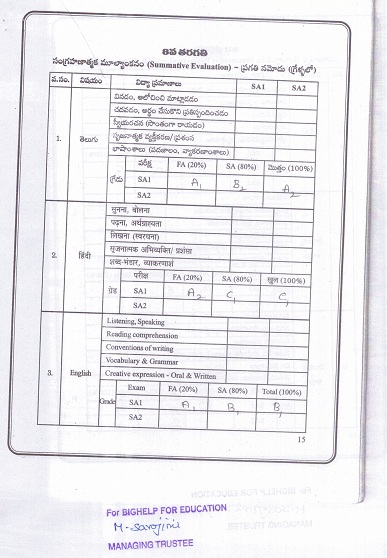 8వ తరగతి
సంగ్రహణాత్మక మూల్యాంకనం (Summative Evaluation) – ప్రగతి నమోదు (గ్రేళ్ళలో)
వ.సం. విషయం విద్యా ప్రమాణాలు SA1 SA2
వినడం, ఆలోచించి మాట్లాడడం
చదవడం, అర్థం చేసుకొని ప్రతిస్పందించడం
స్వీయరచన (సొంతంగా రాయడం)
సృజనాత్మక వ్యక్తీకరణ/ ప్రశంస
భాషాంశాలు (పదజాలం, వ్యాకరణాంశాలు)
1. తెలుగు
గ్రేడు పరీక్ష FA (20%) SA (80%) మొత్తం (100%)
SA1 A1 B2 A2
SA2
सुनना, बोलना
पढ़ना, अर्थग्राह्यता
लिखना (स्वरचना)
सृजनात्मक अभिव्यक्ति/ प्रशंसा
शब्द-भंडार, व्याकरणांश
2. हिंदी
ग्रेड परीक्षा FA (20%) SA (80%) कुल (100%)
SA1 A2 C1 C1
SA2
Listening, Speaking
Reading comprehension
Conventions of writing
Vocabulary & Grammar
Creative expression - Oral & Written
3. English
Grade Exam FA (20%) SA (80%) Total (100%)
SA1 A1 B1 B1
SA2
15
For BIGHELP FOR EDUCATION
M. Sarojini
MANAGING TRUSTEE